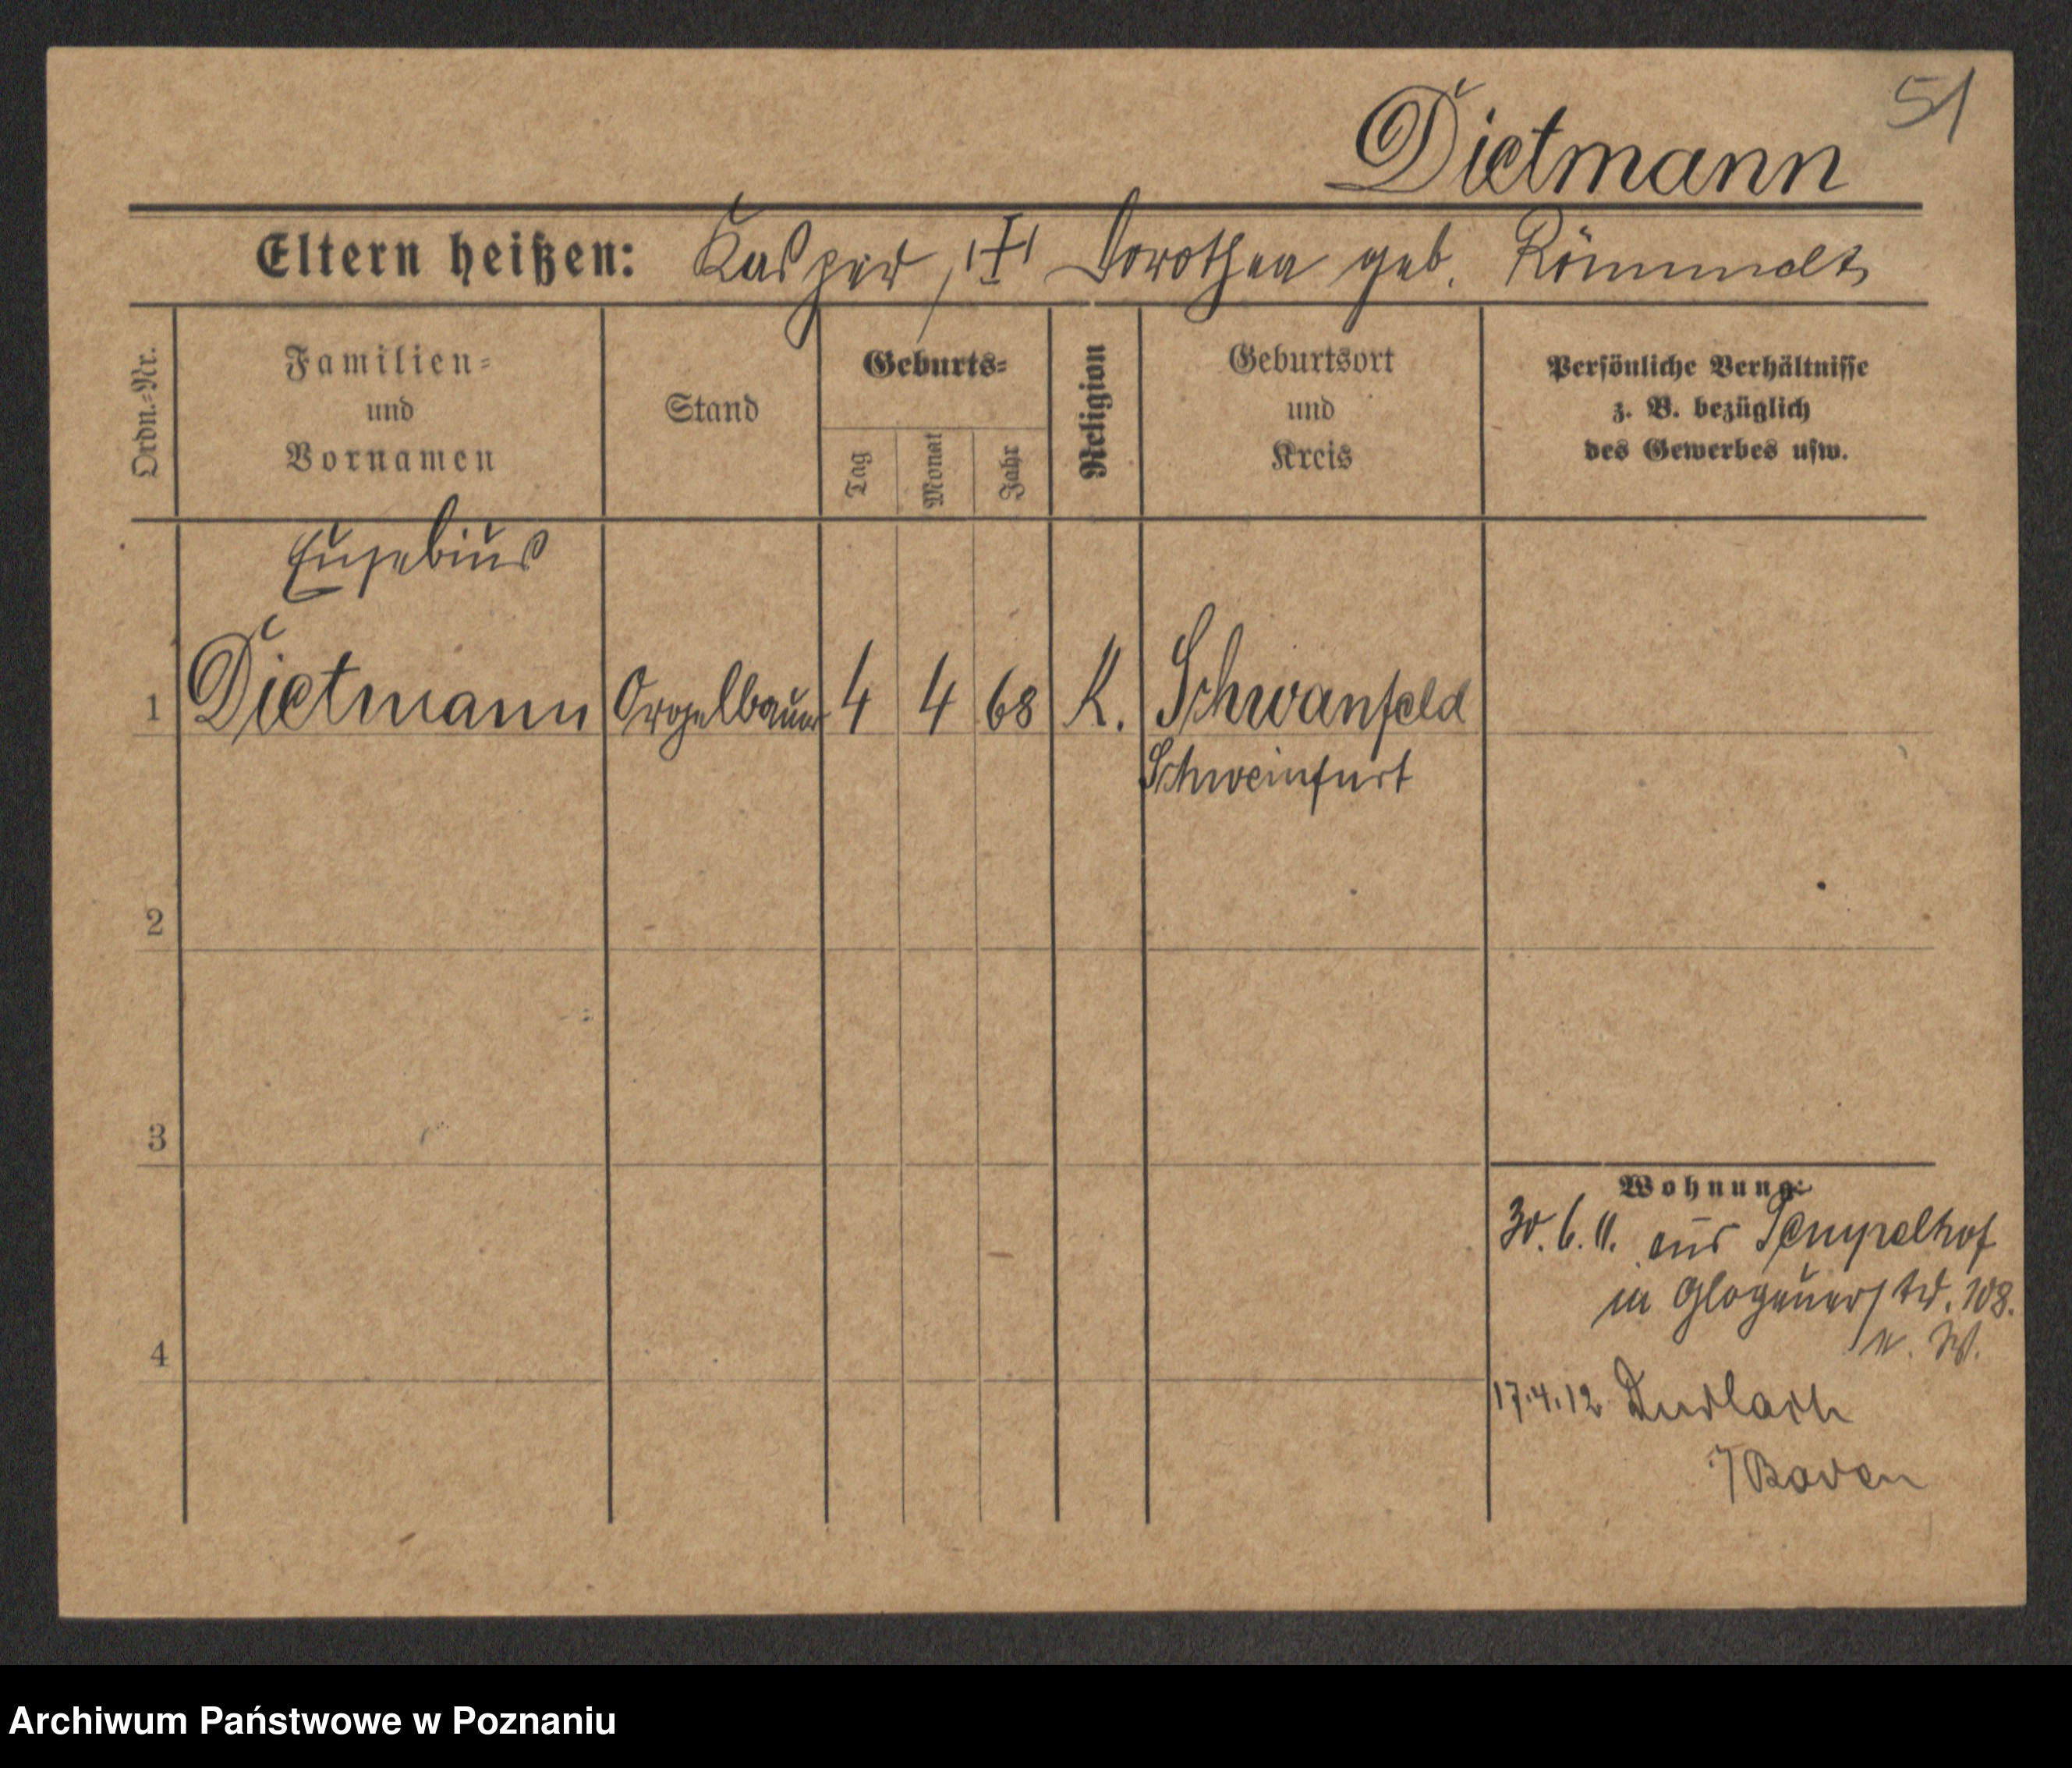 51
Dietmann
Eltern heißen: Kasper, Dorothea geb.
Ordn.-Nr.
Familien-
und
Vornamen
Stand
Geburts-
Tag
Monat
Jahr
Religion
Geburtsort
und
Kreis
Persönliche Verhältnisse
z. B. bezüglich
des Gewerbes usw.
Eusebius
1 Dietmann Orgelbauer 4 4 68 K. Schwanfeld
Schweinfurt
2
3
4
Wohnung:
30. 6. 11. aus Tempelhof
in Glogauerstr. 108.
17.4.12 Durlach
Baden
Archiwum Państwowe w Poznaniu